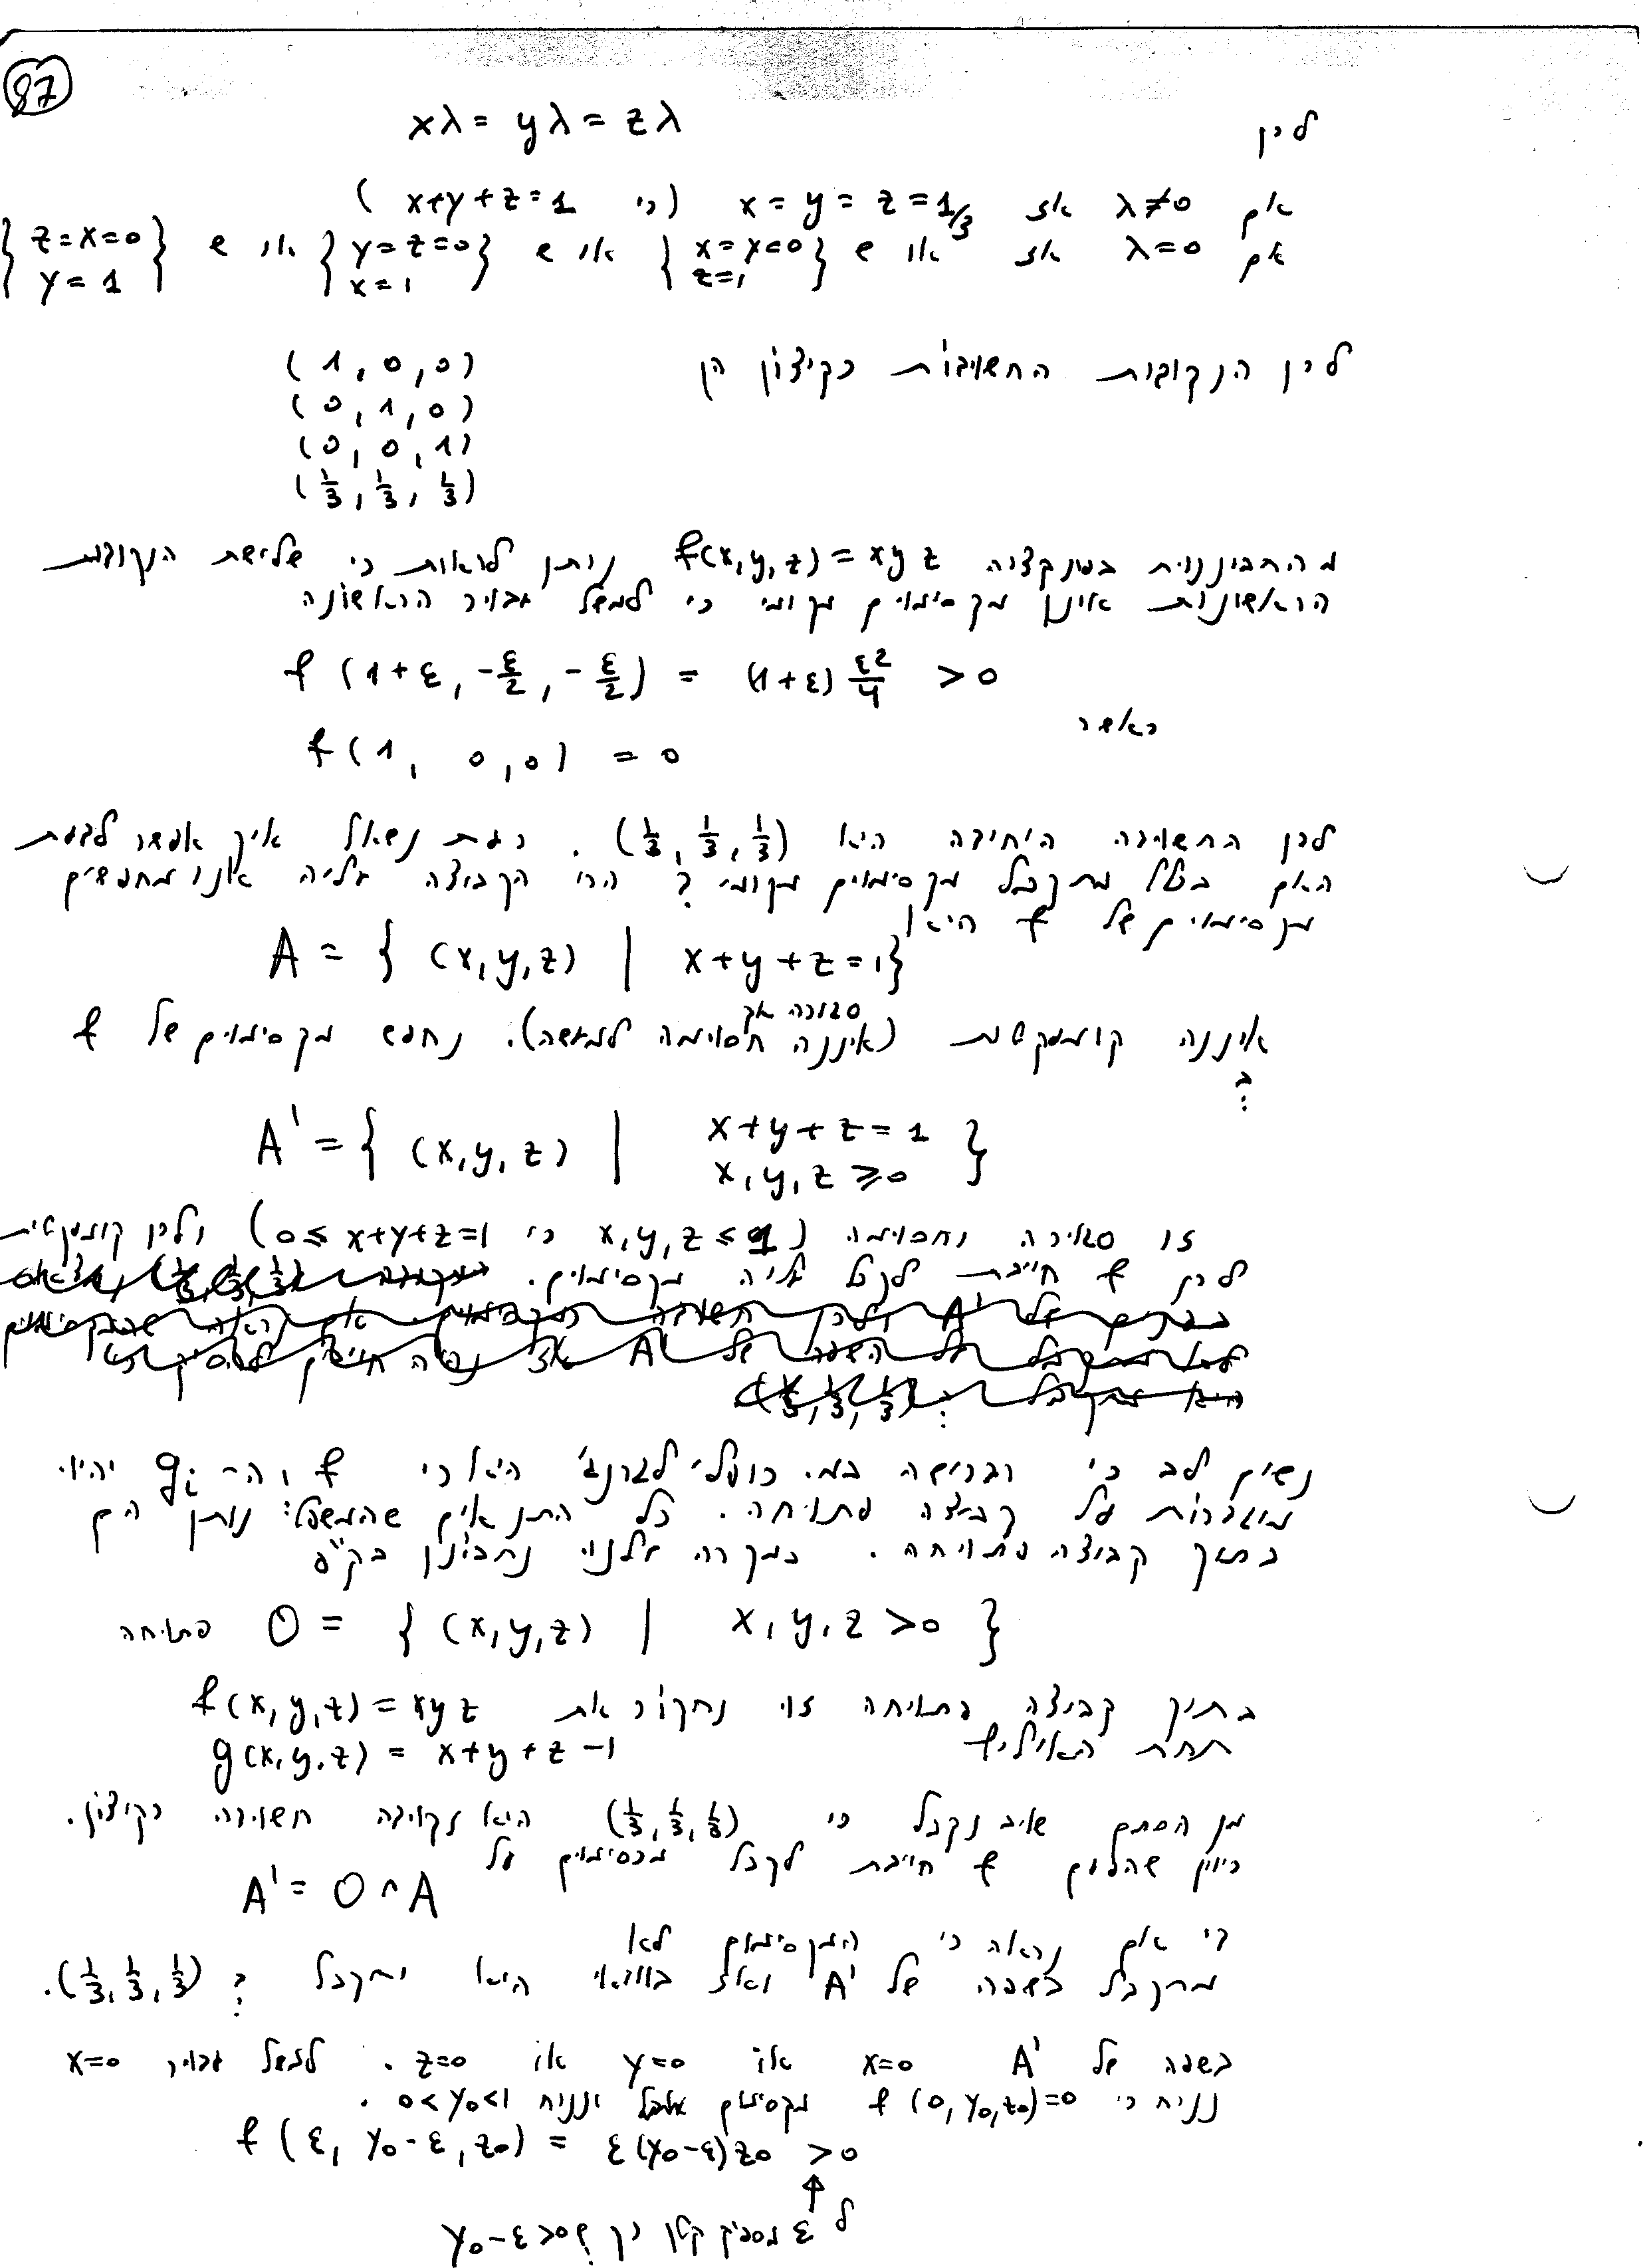 87
לכן xλ = yλ = zλ
אם λ≠0 אז x = y = z = 1/3 (כי x+y+z=1)
אם λ=0 אז או ש {x=y=0 z=1} או ש {y=z=0 x=1} או ש {z=x=0 y=1}
לכן הנקודות החשודות כקיצון הן (1,0,0)
(0,1,0)
(0,0,1)
(1/3, 1/3, 1/3)
מהתבוננות בפונקציה f(x,y,z) = xyz ניתן לראות כי שלושת הנקודות
הראשונות אינן מקסימום מקומי כי למשל עבור הראשונה
f(1+ε, -ε/2, -ε/2) = (1+ε) ε²/4 > 0
כאשר
f(1, 0, 0) = 0
לכן החשודה היחידה היא (1/3, 1/3, 1/3). כעת נשאל איך אפשר לדעת
האם בכלל מתקבל מקסימום מקומי? הרי הקבוצה עליה אנו מחפשים
מקסימום של f היא
A = { (x,y,z) | x+y+z=1}
סגורה אך
איננה קומפקטית (איננה חסומה למעשה). נחפש מקסימום של f
ב:
A' = { (x,y,z) | x+y+z=1 x,y,z ≥ 0 }
זו סגורה וחסומה (x,y,z ≤ 1 כי 0 ≤ x+y+z=1) ולכן קומפקטית
לכן f חייבת לקבל עליה מקסימום.
נשים לב כי הדרישה במ. כופלי לגרנג' היא כי f ו-ה g_i יהיו
מוגדרות על קבוצה פתוחה. כל התנאים שהמשפט נותן הם
בתוך קבוצה פתוחה. במקרה שלנו נתבונן בק"פ
O = { (x,y,z) | x,y,z > 0 } פתוחה
בתוך קבוצה פתוחה זו נחקור את f(x,y,z) = xyz
תחת האילוץ g(x,y,z) = x+y+z-1
מן הסתם שוב נקבל כי (1/3, 1/3, 1/3) היא נקודה חשודה כקיצון.
כיוון שהפעם f חייבת לקבל מכסימום על
A' = O∩A
כי אם נראה כי המקסימום לא
מתקבל בשפה של A' ואז בוודאי היא יתקבל ב: (1/3, 1/3, 1/3).
בשפה של A' x=0 או y=0 או z=0. למשל עבור x=0
נניח כי f(0, y₀, z₀)=0 מקסימום ונניח 0<y₀<1.
f(ε, y₀-ε, z₀) = ε(y₀-ε)z₀ > 0
↑
ל ε מספיק קטן כך ש y₀-ε>0